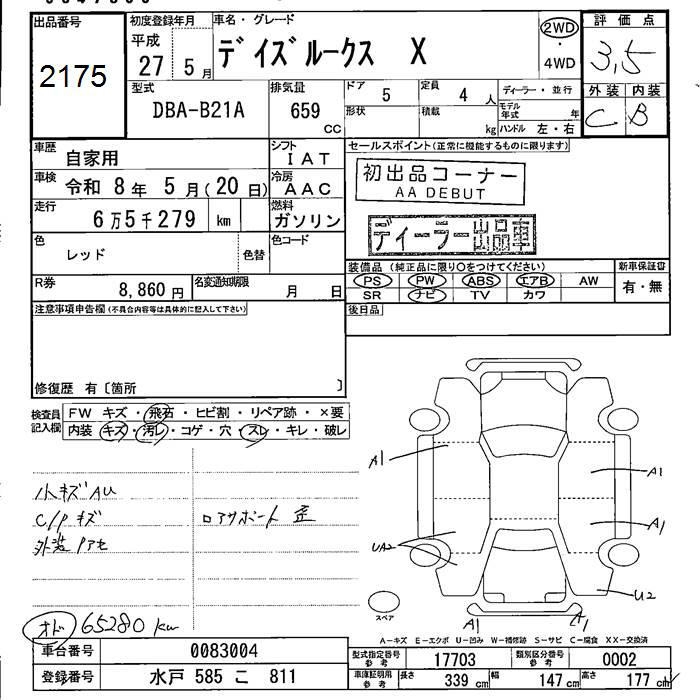 出品番号
2175
初度登録年月
平成
27 5月
車名・グレード
デイズルークス X
2WD
・
4WD
評価点
3.5
外装 内装
C B
型式
DBA-B21A
排気量
659
CC
ドア
5
定員
4 人
形状
積載
kg
ディーラー・並行
モデル年式 年
ハンドル 左・右
車歴
自家用
シフト
IAT
車検
令和 8年 5月(20日)
冷房
AAC
走行
6万5千279 km
燃料
ガソリン
色
レッド
色替
色コード
R券
8,860円
名変通知期限
月 日
セールスポイント(正常に機能するものに限ります)
初出品コーナー
AA DEBUT
ディーラー出品車
装備品 (純正品に限り○をつけてください)
PS PW ABS エアB AW
SR ナビ TV カワ
新車保証書
有・無
後日品
注意事項申告欄(不具合内容等は具体的に記入して下さい)
修復歴 有〔箇所 〕
検査員
記入欄
FW キズ・飛石・ヒビ割・リペア跡・×要
内装 キズ・汚レ・コゲ・穴・スレ・キレ・破レ
小キズAU
C/Pキズ
ロアサポート 歪
外装
オド 65280 km
A1
A1
A1
UA2
U2
A1
A1
スペア
A-キズ E-エクボ U-凹み W-補修跡 S-サビ C-腐食 XX-交換済
車台番号
0083004
登録番号
水戸 585 こ 811
型式指定番号
参考
17703
類別区分番号
参考
0002
車庫証明用
参考
長さ
339 cm
幅
147 cm
高さ
177 cm